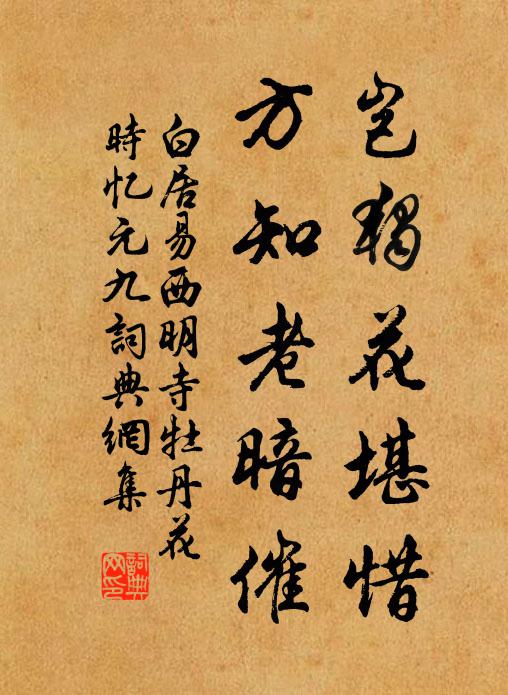 岂独花堪惜
方知老暗催
白居易西明寺牡丹花
時忆元九詞典網集
詞典
网印